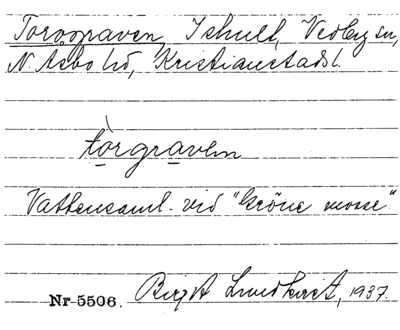 Torvgraven, Ishult, Vedby sn,
N. Åsbo hd, Kristianstads l.
tòrgraven
Vattensaml. vid "Kröne mosse"
Nr 5506. Birgit Lundkvist, 1937.